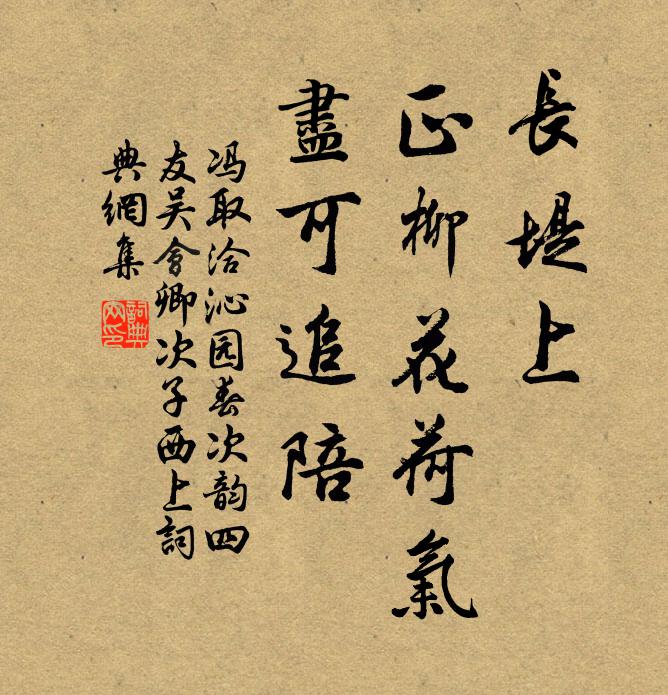 長堤上
正柳花荷氣
盡可追陪
冯取洽沁园春次韵四
友吴會卿次子西上詞
典網集
詞典網印